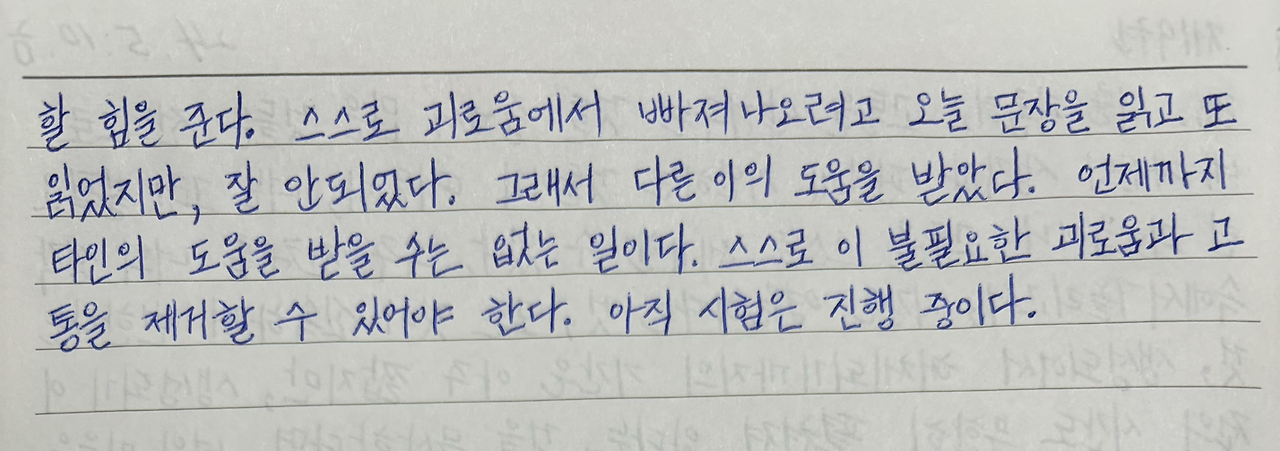 할 힘을 준다. 스스로 괴로움에서 빠져나오려고 오늘 문장을 읽고 또
읽었지만, 잘 안되었다. 그래서 다른 이의 도움을 받았다. 언제까지
타인의 도움을 받을 수는 없는 일이다. 스스로 이 불필요한 괴로움과 고
통을 제거할 수 있어야 한다. 아직 시험은 진행 중이다.